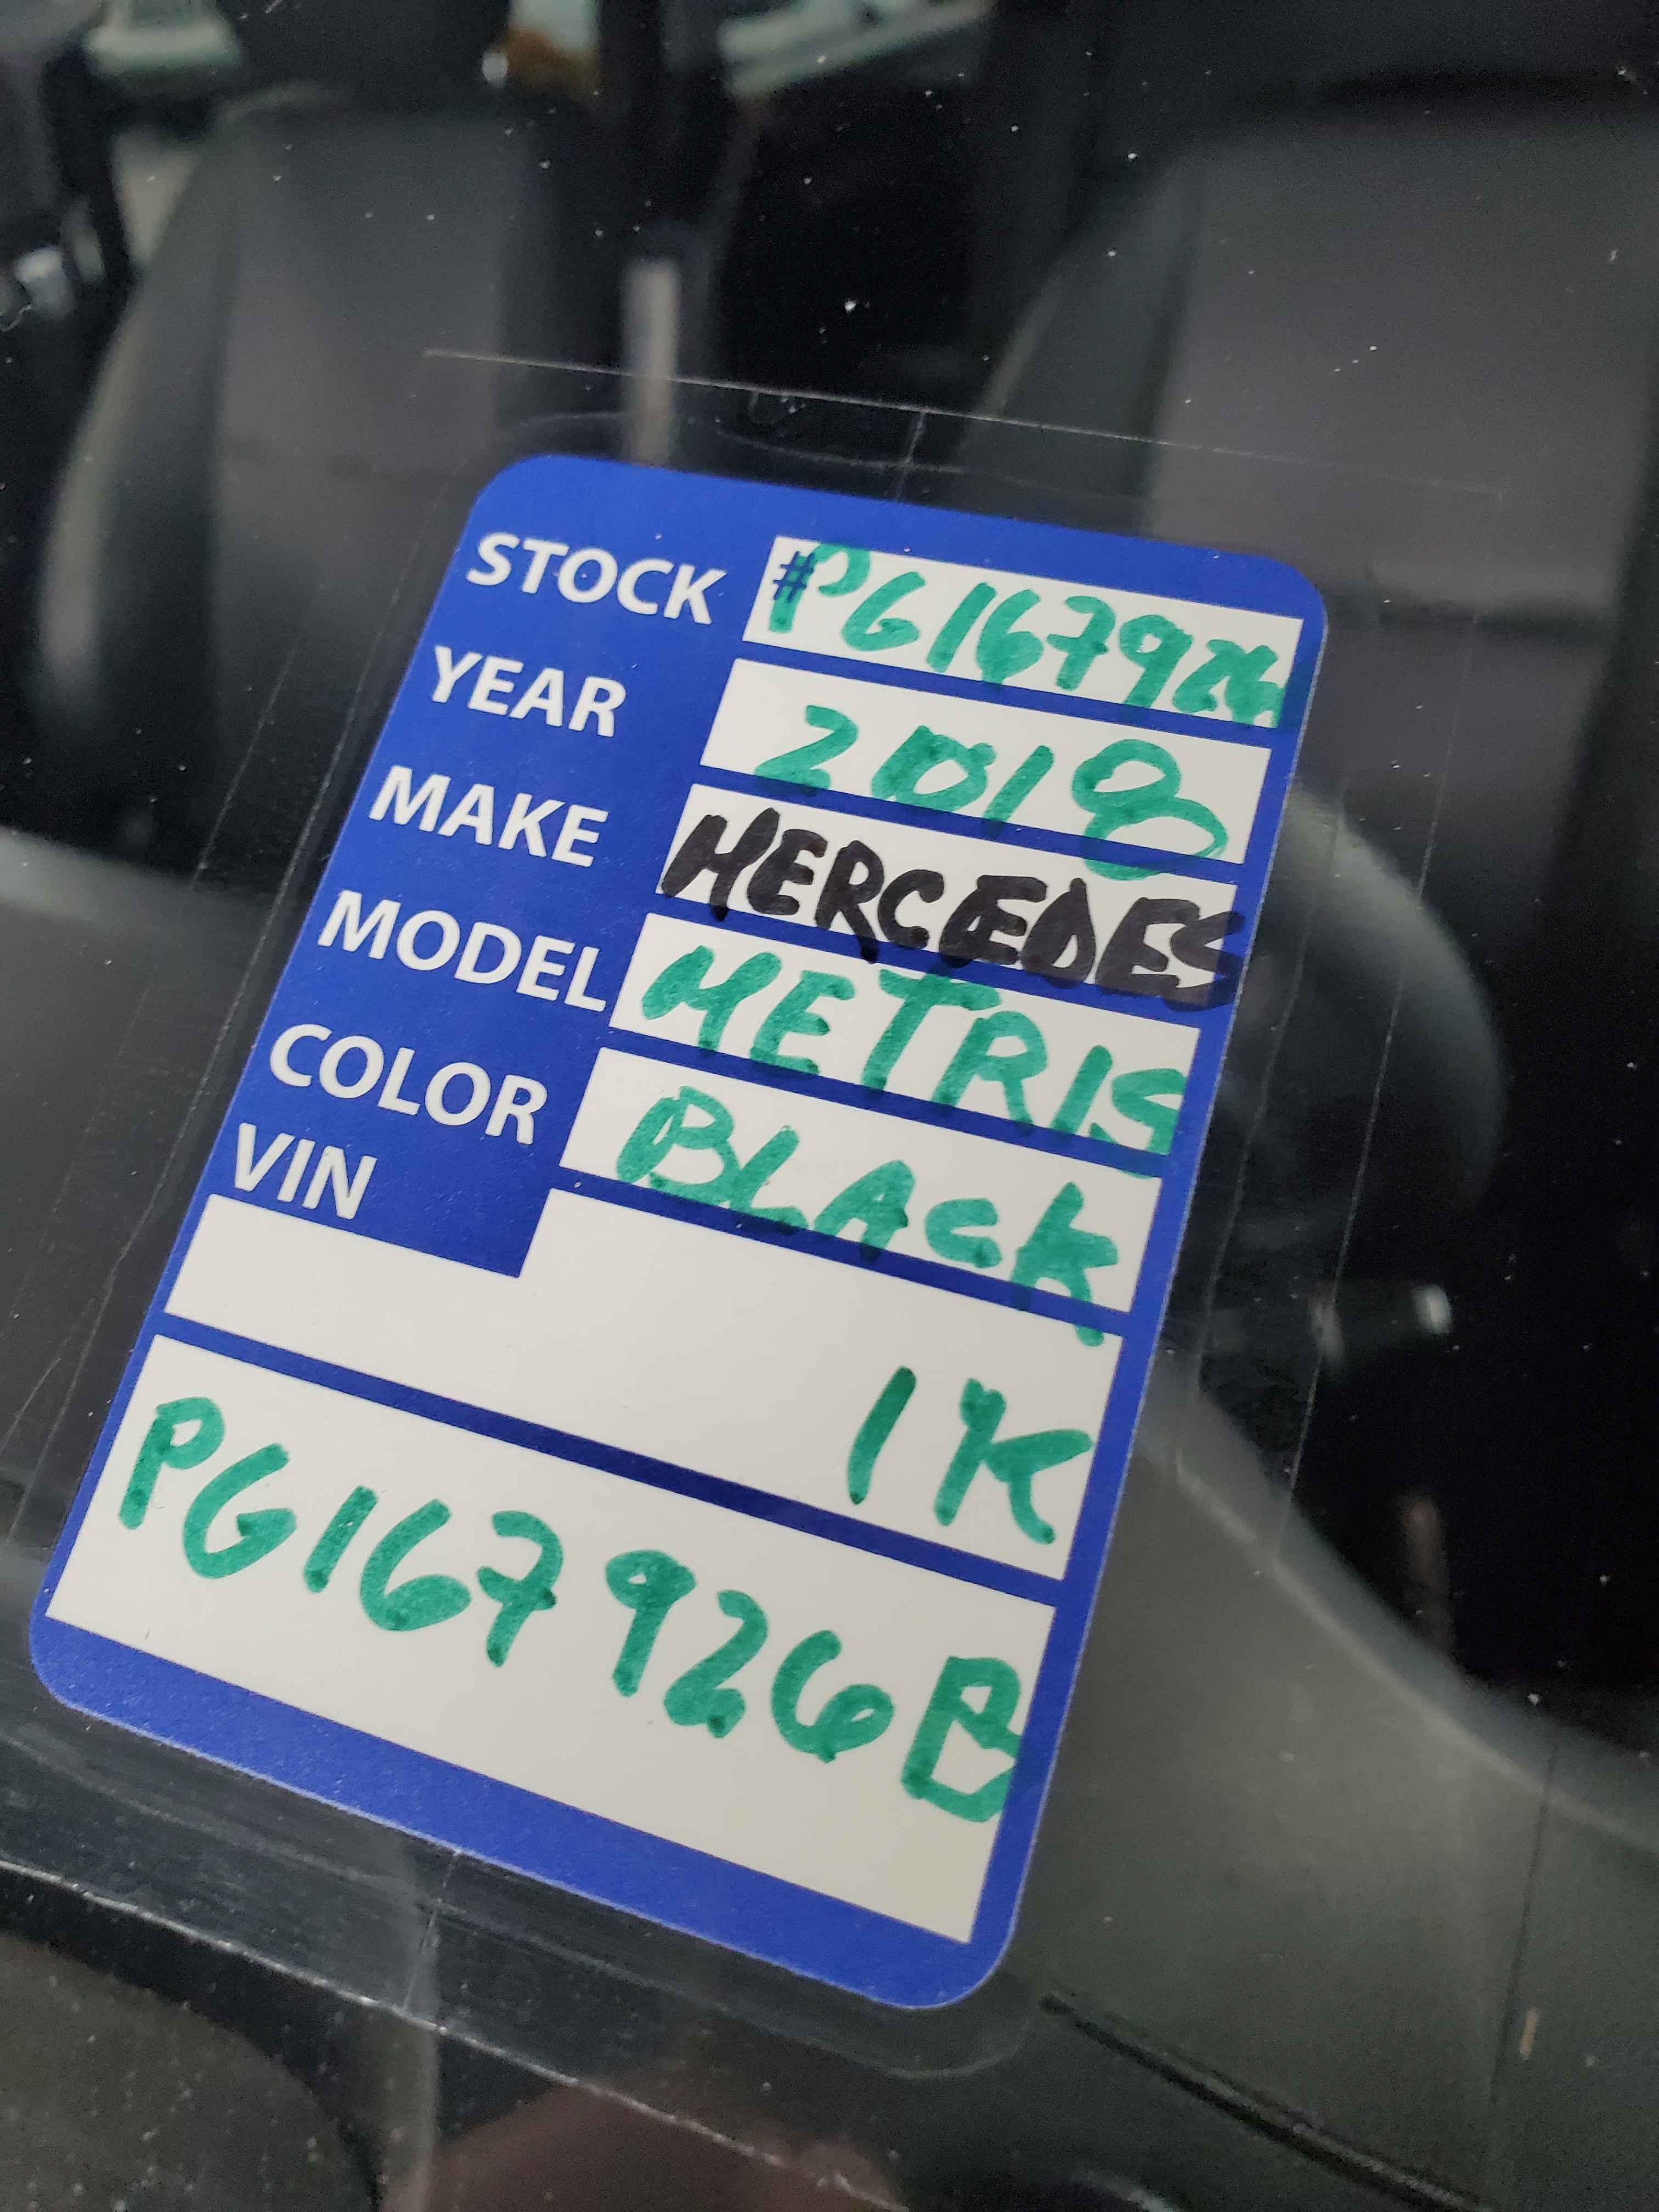 STOCK #PG167926
YEAR 2018
MAKE MERCEDES
MODEL METRIS
COLOR BLACK
VIN
1K
PG167926B